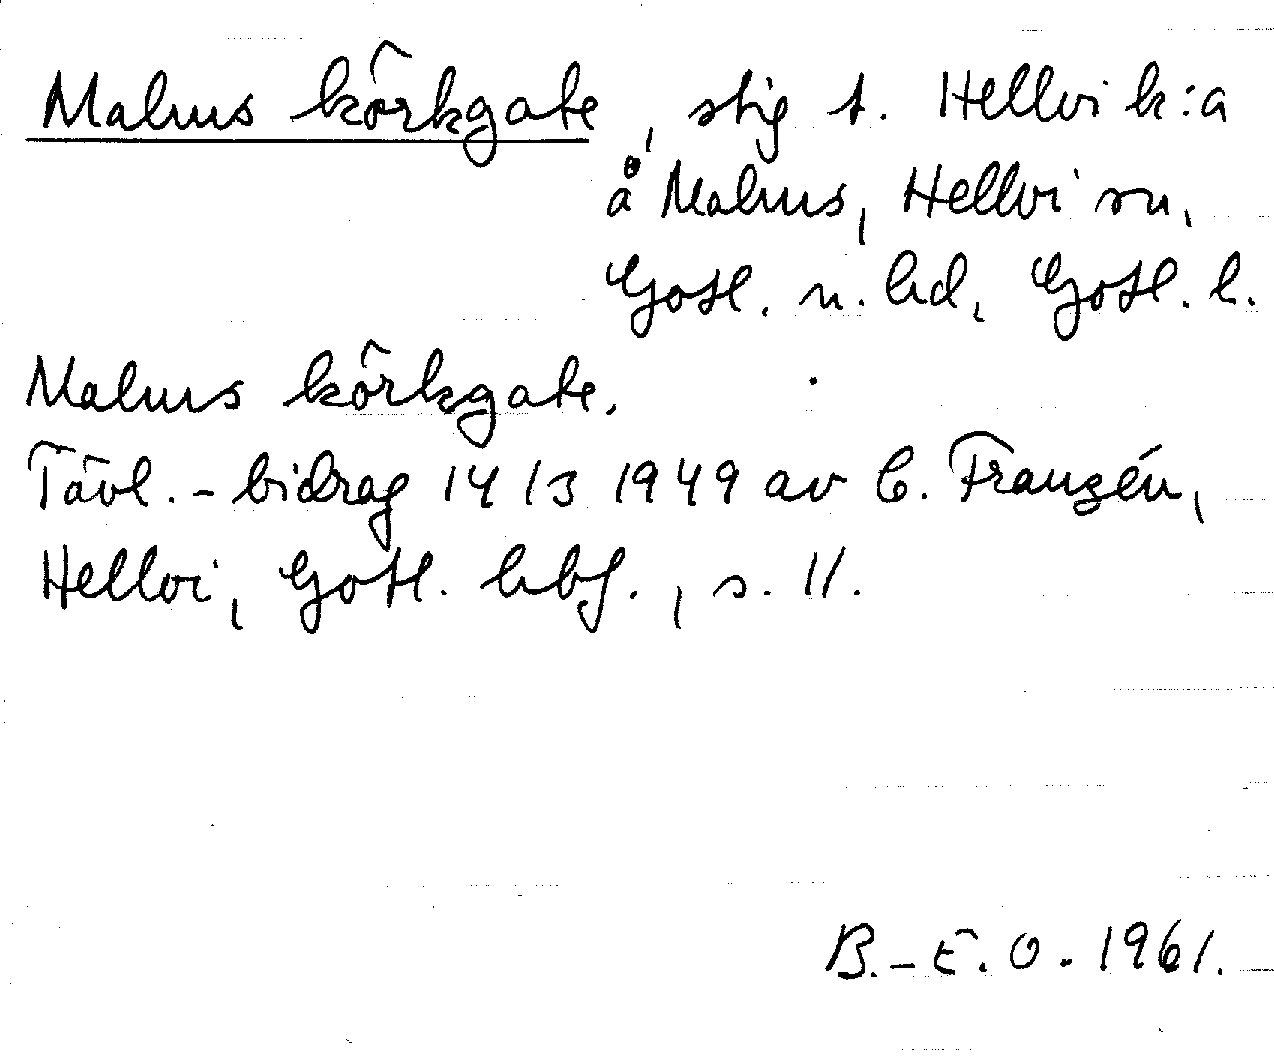 Malms körkgate, stig t. Hellvi k:a
å Malms, Hellvi sn,
Gotl. n. hd, Gotl. l.
Malms körkgate.
Tävl.-bidrag 14/3 1949 av C. Franzén,
Hellvi, Gotl. hbf., s. 11.
B.-E.O. 1961.